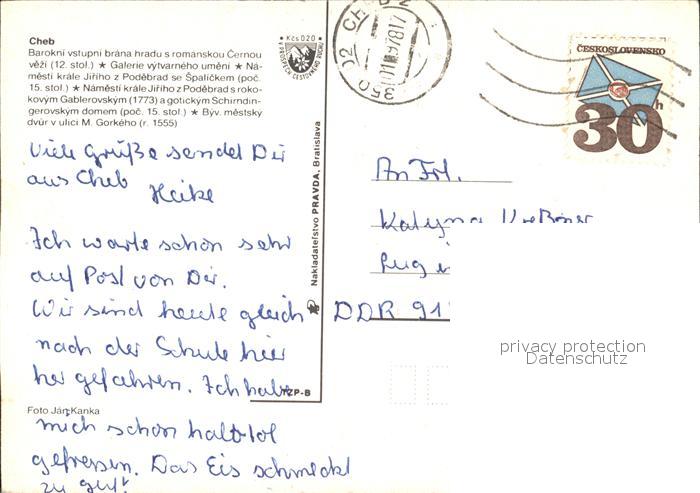 Cheb
Barokní vstupní brána hradu s románskou Černou
věží (12. stol.) ★ Galerie výtvarného umění ★ Ná-
městí krále Jiřího z Poděbrad se Špalíčkem (poč.
15. stol.) ★ Náměstí krále Jiřího z Poděbrad s roko-
kovým Gablerovským (1773) a gotickým Schirndin-
gerovským domem (poč. 15. stol.) ★ Býv. městský
dvůr v ulici M. Gorkého (r. 1555)
Viele Grüße sendet Dir
aus Cheb
Heike
Ich warte schon sehr
auf Post von Dir.
Wir sind heute gleich
nach der Schule hier
her gefahren. Ich habe
mich schon halbtot
gefressen. Das Eis schmeckt
zu gut!
Foto Ján Kanka
Kčs 0,20
Nakladatelstvo PRAVDA, Bratislava
TZP-B
350 02 CHEB 2
ČESKOSLOVENSKO
30h
An Frl.
DDR 91
privacy protection
Datenschutz